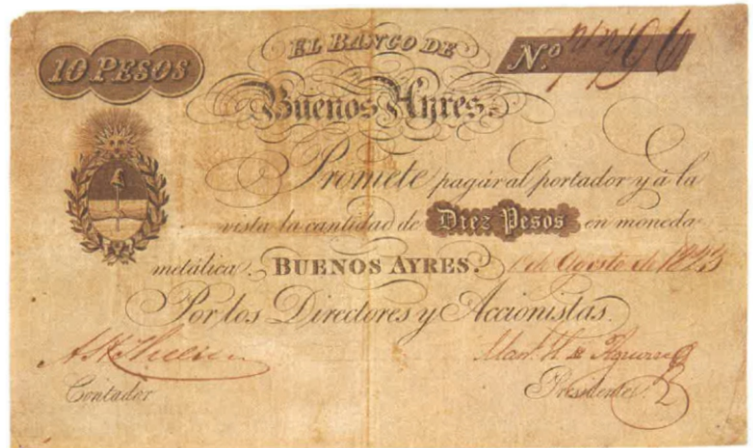 10 PESOS
EL BANCO DE
N.º
Buenos Ayres.
Promete pagár al portador y á la
vista la cantidad de Diez Pesos en moneda
metálica. BUENOS AYRES. 1º de Agosto de 1823
Por los Directores y Accionistas
Contador
Presidente